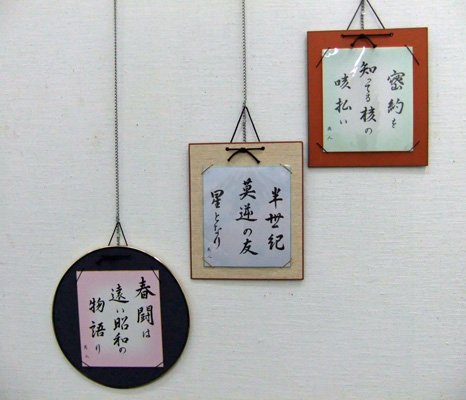 密約を
知ってる核の
咳払い
半世紀
莫逆の友
星となり
春闘は
遠い昭和の
物語り